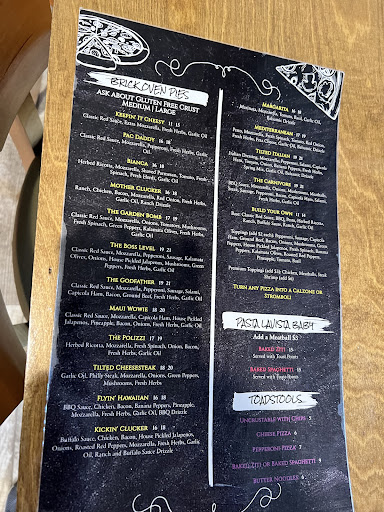 BRICK OVEN PIES
ASK ABOUT GLUTEN FREE CRUST
MEDIUM | LARGE
KEEPIN' IT CHEESY 11 15
Classic Red Sauce, Extra Mozzarella, Fresh Herbs, Garlic Oil
PAC DADDY 16 18
Classic Red Sauce, Mozzarella, Pepperoni, Fresh Herbs, Garlic
Oil
BIANCA 16 18
Herbed Ricotta, Mozzarella, Shaved Parmesan, Tomato, Fresh
Spinach, Fresh Herbs, Garlic Oil
MOTHER CLUCKER 16 18
Ranch, Chicken, Bacon, Mozzarella, Red Onion, Fresh Herbs,
Garlic Oil
THE GARDEN BOMB 17 19
Classic Red Sauce, Mozzarella, Onions, Tomatoes, Mushrooms,
Fresh Spinach, Green Peppers, Kalamata Olives, Fresh Herbs,
Garlic Oil
THE BOSS LEVEL 19 21
Classic Red Sauce, Mozzarella, Pepperoni, Sausage, Kalamata
Olives, Onions, House Pickled Jalapenos, Mushrooms, Green
Peppers, Fresh Herbs, Garlic Oil
THE GODFATHER 19 21
Classic Red Sauce, Mozzarella, Pepperoni, Sausage, Salami,
Capicola Ham, Bacon, Ground Beef, Fresh Herbs, Garlic Oil
MAUI WOWIE 18 20
Classic Red Sauce, Mozzarella, Capicola Ham, House Pickled
Jalapenos, Pineapple, Bacon, Onions, Fresh Herbs, Garlic Oil
THE POLIZZI 17 19
Herbed Ricotta, Mozzarella, Fresh Spinach, Onion, Bacon,
Fresh Herbs, Garlic Oil
TILTED CHEESESTEAK 18 20
Garlic Oil, Philly Steak, Mozzarella, Onions, Green Peppers,
Mushrooms, Fresh Herbs
FLYIN' HAWAIIAN 16 18
BBQ Sauce, Chicken, Bacon, Banana Peppers, Pineapple,
Mozzarella, Fresh Herbs, Garlic Oil, BBQ Drizzle
KICKIN' CLUCKER 16 18
Buffalo Sauce, Chicken, Bacon, House Pickled Jalapenos,
Onions, Roasted Red Peppers, Mozzarella, Fresh Herbs, Garlic
Oil, Ranch and Buffalo Sauce Drizzle
MARGARITA 16 18
Mozzarella, Tomato, Basil, Garlic Oil,
Balsamic Drizzle
MEDITERRANEAN 17 19
Pesto, Mozzarella, Fresh Spinach, Tomato, Red Onion,
Fresh Herbs, Feta Cheese, Garlic Oil, Balsamic Drizzle
TILTED ITALIAN 19 21
Italian Dressing, Mozzarella, Pepperoni, Salami, Capicola
Ham, Tomato, Onion, Banana Peppers, Fresh Herbs,
Spring Mix, Garlic Oil, Balsamic Drizzle
THE CARNIVORE 19 21
BUILD YOUR OWN 11 14
Base: Classic Red Sauce, BBQ, Pesto, Herbed Ricotta,
Ranch, Buffalo, Garlic Oil
Toppings (add $2 each) Pepperoni, Sausage, Capicola
Ham, Ground Beef, Bacon, Onions, Mushrooms, Green
Peppers, House Pickled Jalapenos, Fresh Spinach, Banana
Peppers, Kalamata Olives, Roasted Red Peppers,
Pineapple, Tomato, Basil
Premium Toppings (add $3) Chicken, Meatballs, Feta,
Shrimp (add $4)
TURN ANY PIZZA INTO A CALZONE OR
STROMBOLI
PASTA LAVISTA BABY
Add a Meatball $3
BAKED ZITI 15
Served with Toast Points
BAKED SPAGHETTI 15
Served with Toast Points
TOADSTOOLS
UNCRUSTABLE WITH CHIPS 5
CHEESE PIZZA 6
PEPPERONI PIZZA 7
BAKED ZITI OR BAKED SPAGHETTI 9
BUTTER NOODLES 5